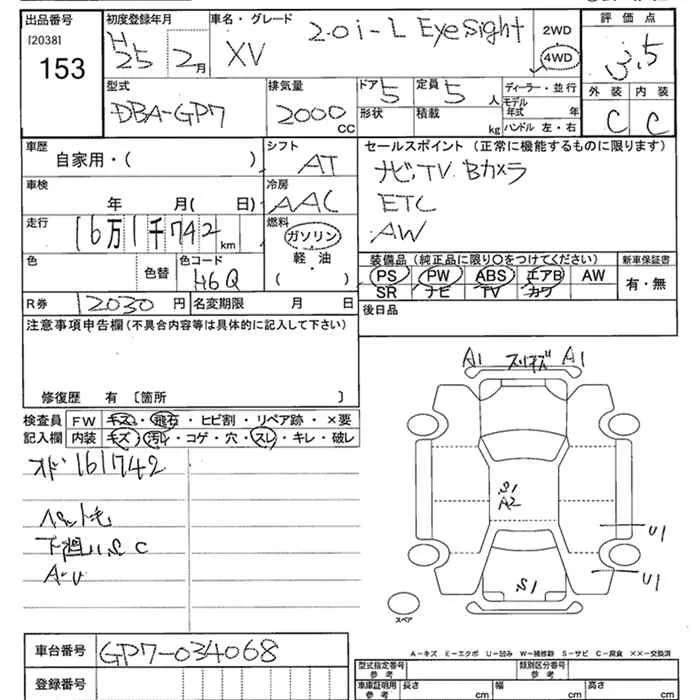 出品番号 初度登録年月 車名・グレード 2.0i-L EyeSight 2WD 評価点
[2038] H 25 2月 XV 4WD 3.5
153 外装 内装
型式 排気量 ドア 5 定員 5人 ディーラー・並行 C C
DBA-GP7 2000 CC 形状 積載 kg モデル年式 年
ハンドル 左・右
車歴 シフト セールスポイント(正常に機能するものに限ります)
自家用・( ) AT ナビ,TV. Bカメラ
車検 冷房 ETC
年 月( 日) AAC AW
走行 16万1千742km 燃料
ガソリン・軽油・( ) 装備品(純正品に限り○をつけてください) 新車保証書
色 色替 色コード H6Q PS PW ABS エアB AW 有・無
SR ナビ TV カワ
R券 2030円 名変期限 月 日 後日品
注意事項申告欄(不具合内容等は具体的に記入して下さい)
修復歴 有 〔箇所 〕
検査員 FW キズ・飛石・ヒビ割・リペア跡・×要
記入欄 内装 キズ・汚レ・コゲ・穴・スレ・キレ・破レ
オド 161742
下廻り.S C
A.U
A1 スリキズ A1
S1
A2
U1
U1
S1
スペア
車台番号 GP7-034068
A-キズ E-エクボ U-凹み W-補修跡 S-サビ C-腐食 XX-交換済
登録番号 型式指定番号 参考 類別区分番号 参考
車庫証明用 参考 長さ cm 幅 cm 高さ cm